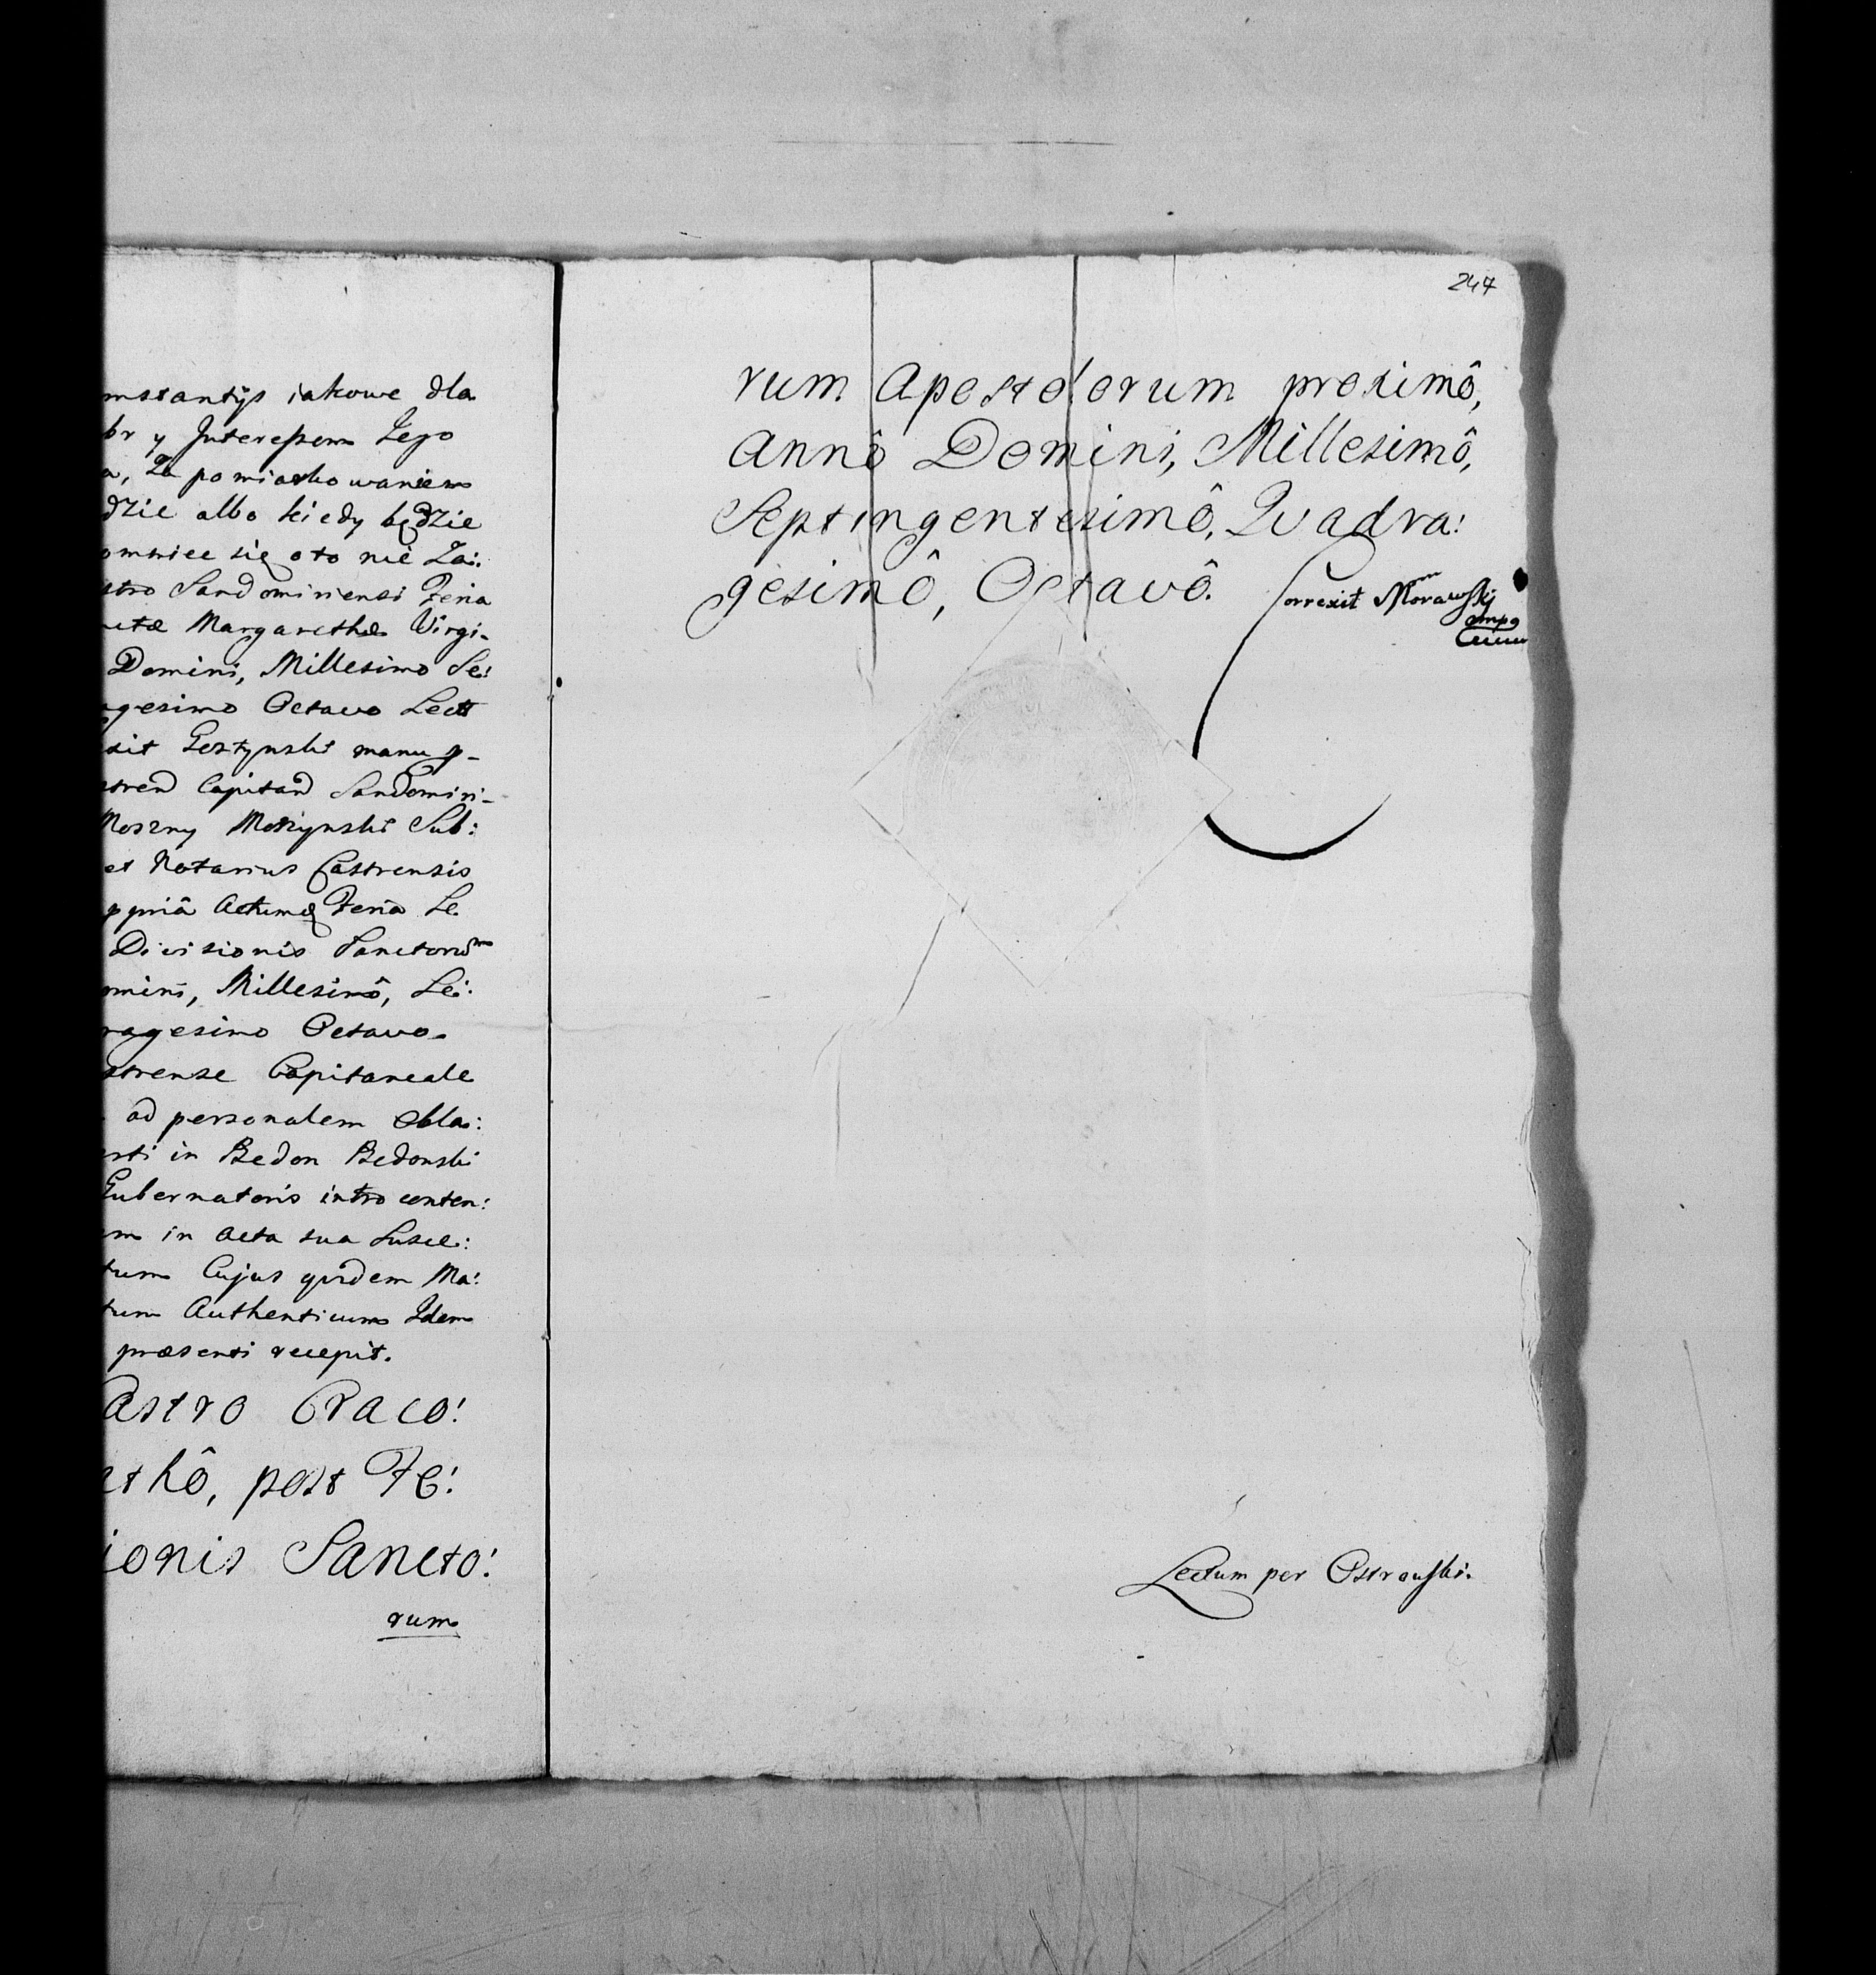 mstantijs iakowe dla
br y Interessem Jego
a, Za pomiarkowaniem
dzie albo kiedy będzie
omniec się oto nie Za:
stro Sandomiriensi Feria
ctæ Margarethæ Virgi-
Domini, Millesimo Se:
gesimo Octavo Lect
xit Gostynski manu p-
stren Capitan Sandomiri-
Moszny Moszynski Sub:
et Notarius Castrensis
ppriâ Actumq Feria Se
Divisionis Sanctorum
omini, Millesimô, Se:
ragesimo Octavo
strense Capitaneale
ad personalem Obla:
sti in Bedon Bedonski
Gubernatoris intro conten:
m in Acta sua Susce:
tum Cujus quidem Ma:
tum Authenticum Idem
præsenti recepit.
Castro Craco:
athô, post Fe:
ionis Sancto:
rum
247
rum Apostolorum proximô,
Annô Domini, Millesimô,
Septingentesimô, Quadra:
gesimô, Octavô.
Correxit Morawskj
mpp
Lectum per Ostrowski.